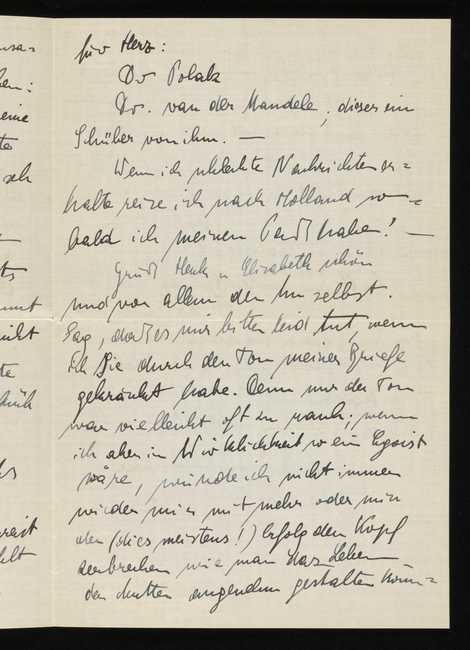 usa=
hen:
eine
te
seh
ts
nicht
te
früh
ereit
hlt
für Herz:
Dr Polak
Dr. van der Mandele, dieser ein
Schüler von ihm. —
Wenn ich schlechte Nachrichten er=
halte reise ich nach Holland so=
bald ich meinen habe! —
Grüß Henk u Elisabeth schön
und vor allem den selbst.
Sag, daß es mir bitter leid tut, wenn
ich Sie durch den Ton meiner Briefe
gekränkt habe. Denn nur der Ton
war vielleicht oft zu rauh; wenn
ich aber in Wirklichkeit so ein Egoist
wäre, würde ich nicht immer
wieder mir mit mehr oder min
der (dies meistens!) Erfolg den Kopf
zerbrechen wie man das Leben
der angenehm gestalten könn=